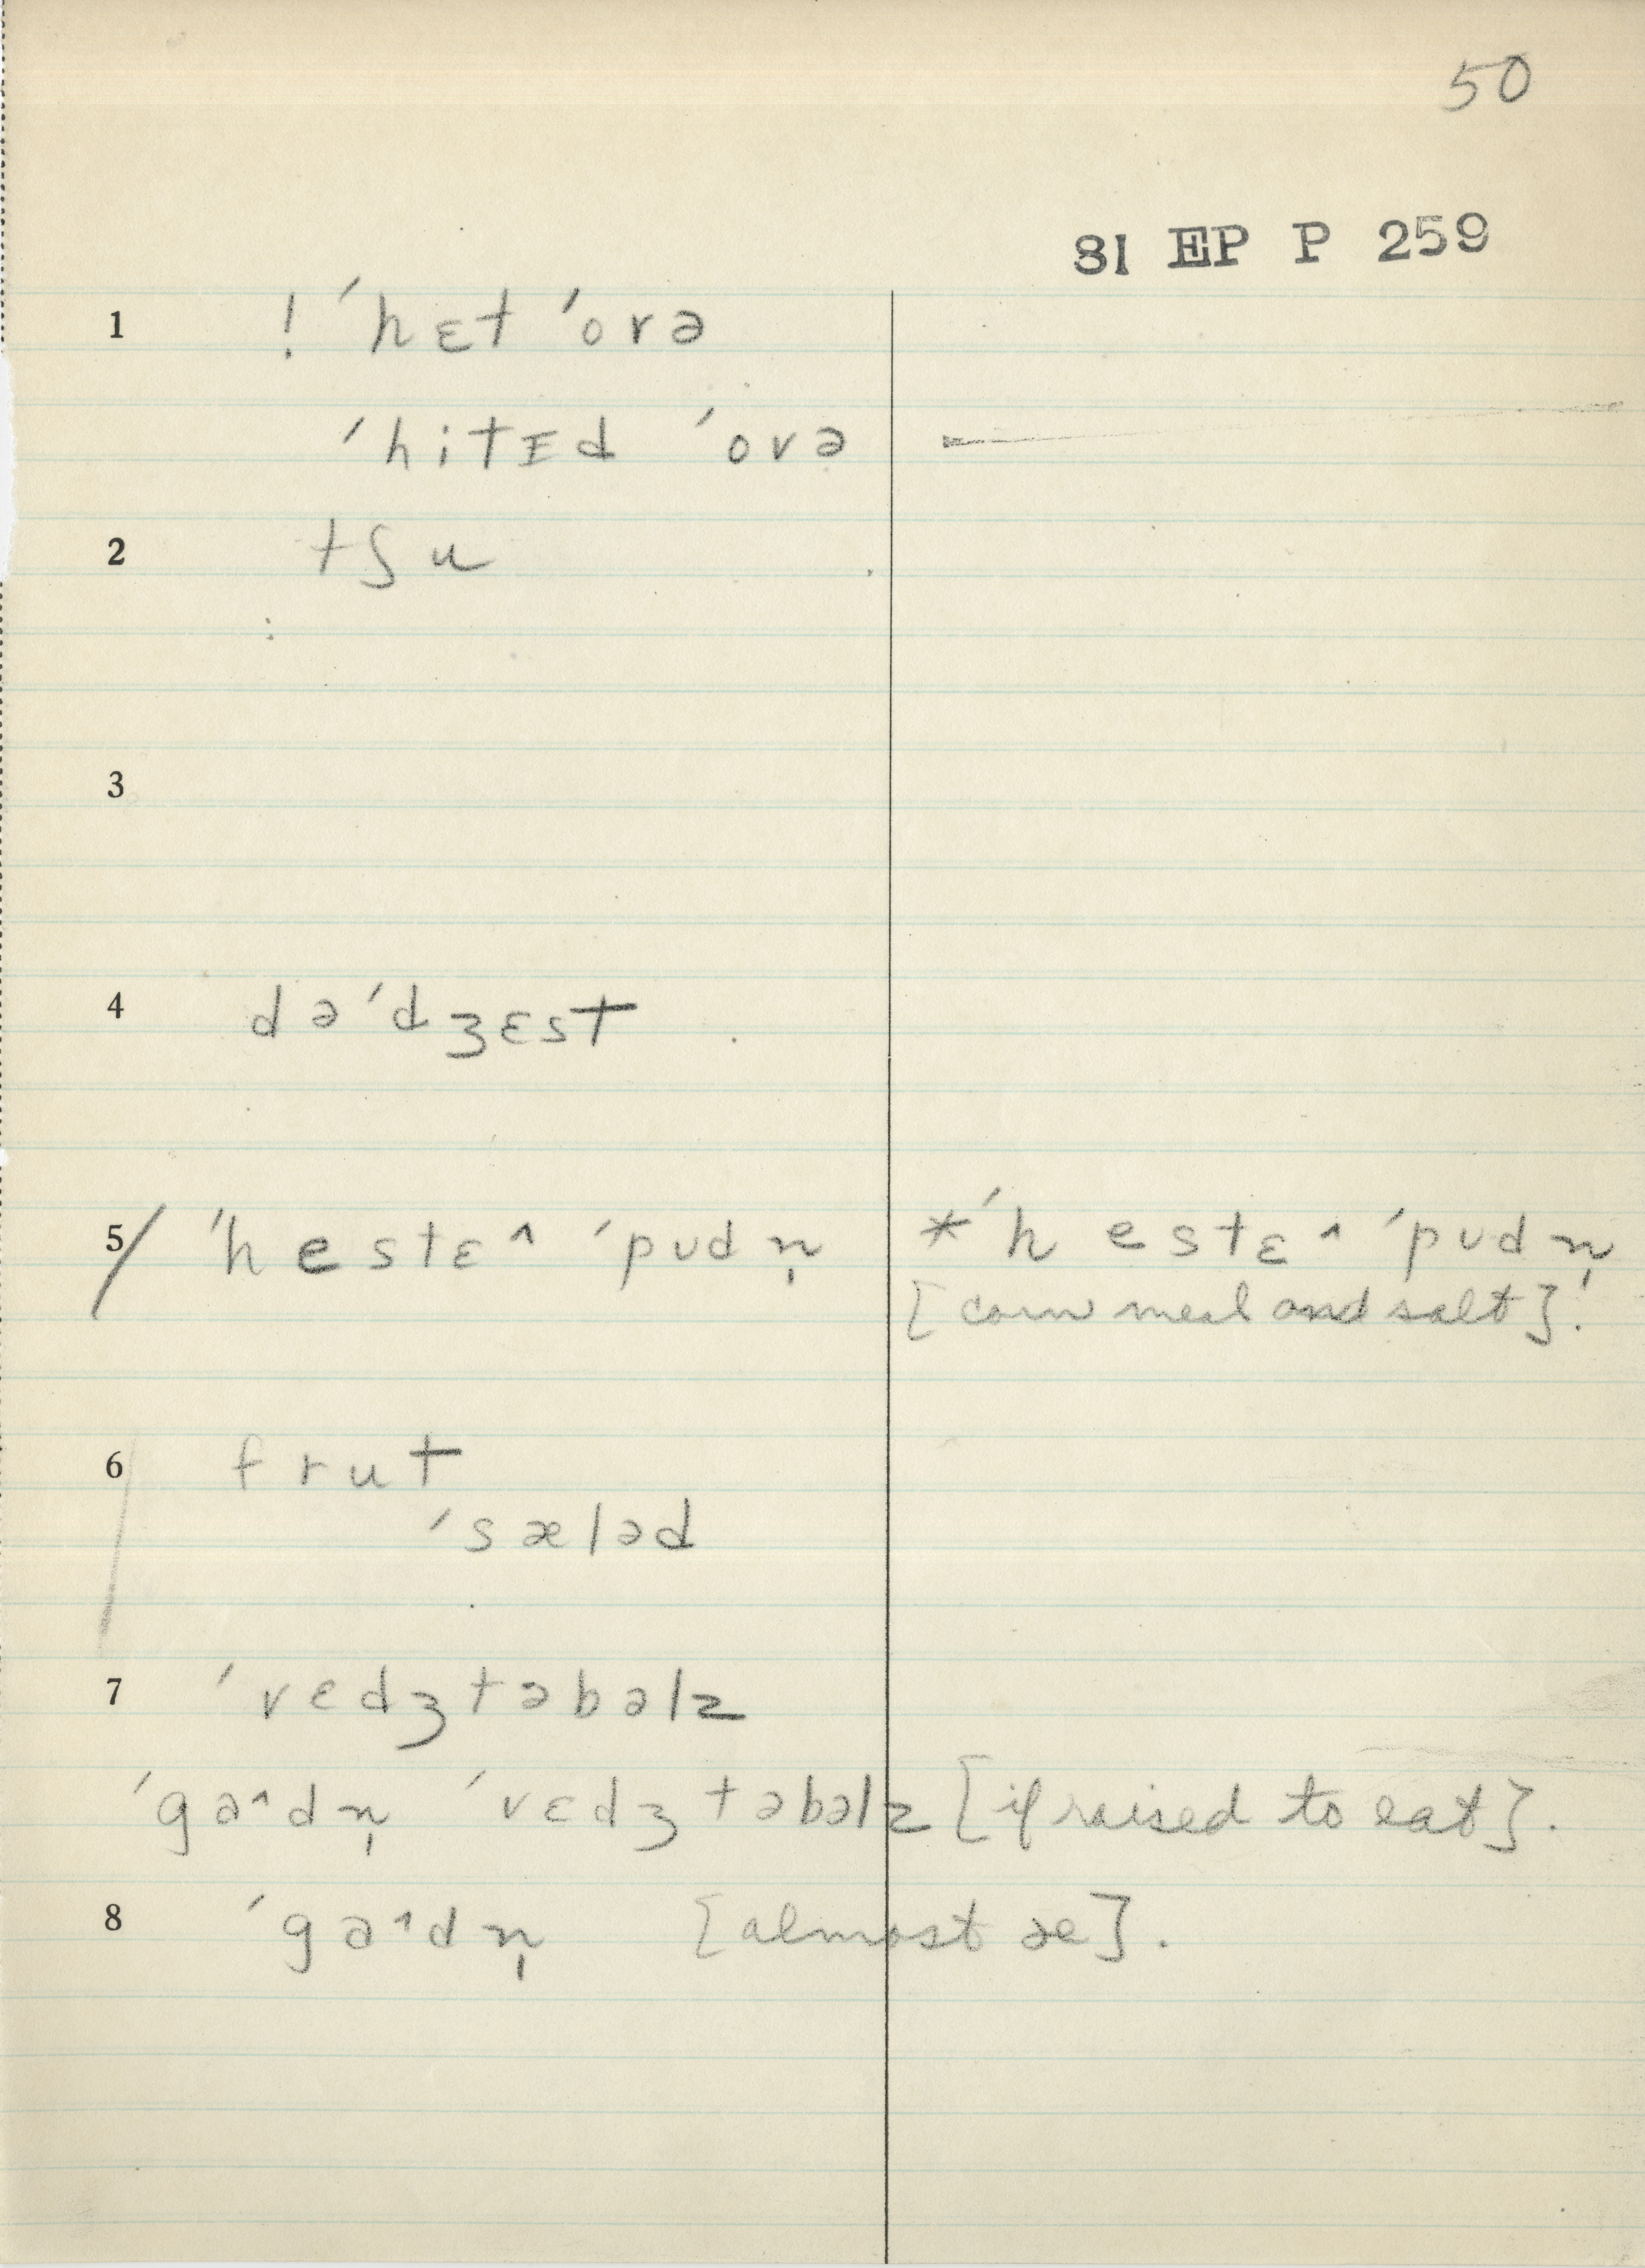 50
81 EP P 259
1 ! ˈhɛt ˈovə
ˈhitɪd ˈovə
2 tʃu
3
4 dəˈdʒɛst
5/ ˈhestɛ^ ˈpudn̩ *ˈhestɛ^ ˈpudn̩
[corn meal and salt]!
6 frut
ˈsæləd
7 ˈvedʒtəbəlz
ˈga^dn̩ ˈvɛdʒtəbəlz [if raised to eat].
8 ˈga^dn̩ [almost æ].